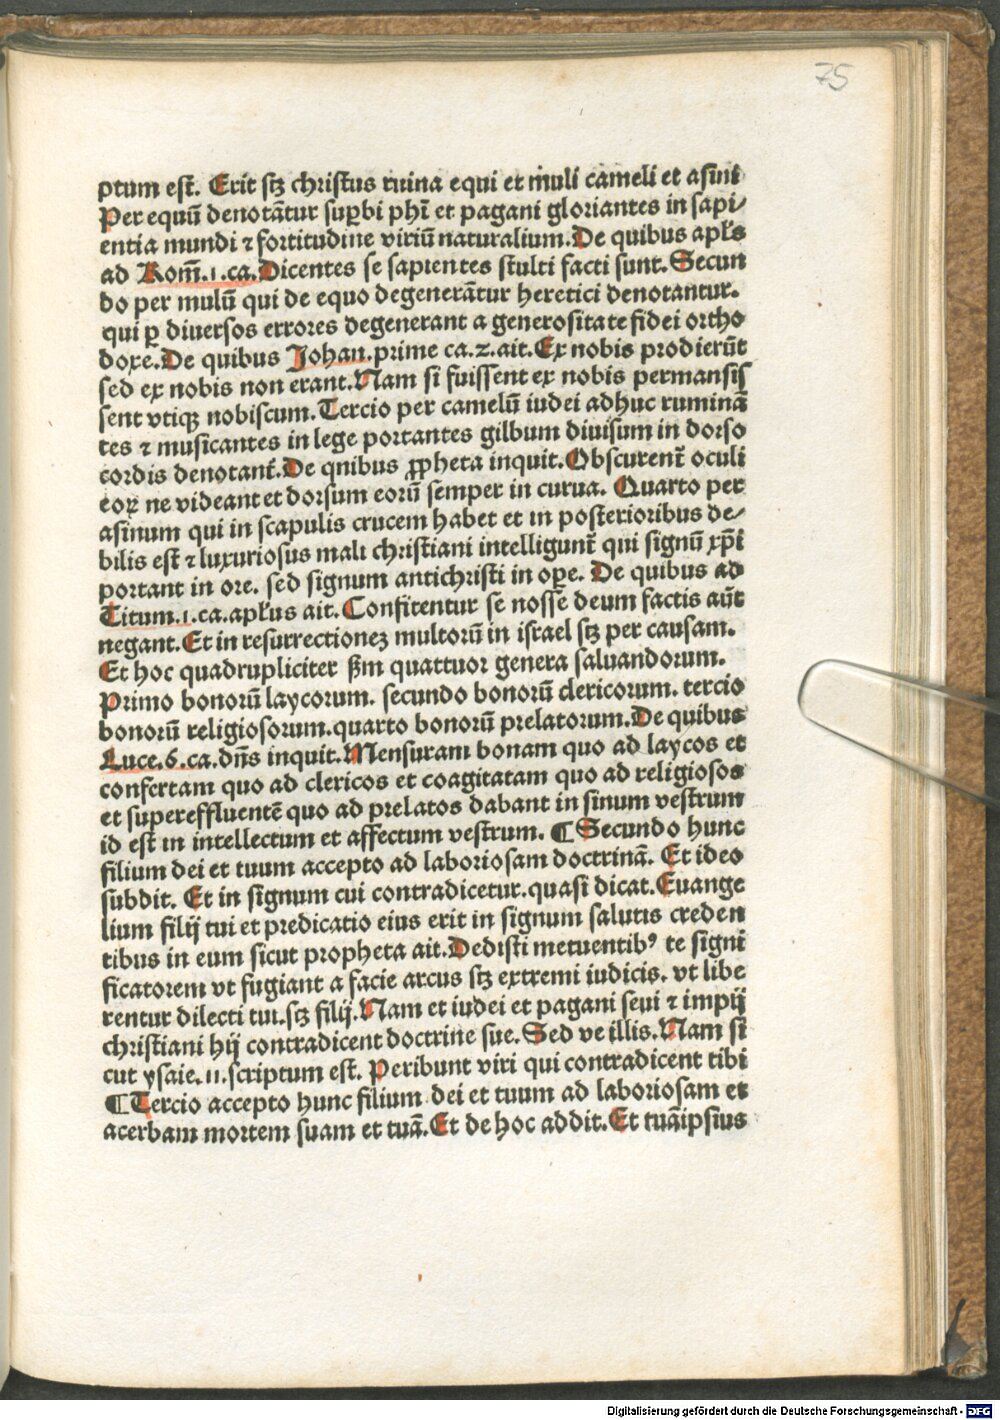 75
ptum est̃. Erit sꝫ christus ruina equi et muli cameli et asini
Per equũ denotãtur suꝑbi phĩ et pagani gloriantes in sapi/
entia mundi ⁊ fortitudine viriũ naturalium. De quibus apl̃s
ad Rom̃.1.ca. Dicentes se sapientes stulti facti sunt. Secun
do per mulũ qui de equo degenerãtur heretici denotantur.
qui ꝑ diuersos errores degenerant a generositate fidei ortho
doxe. De quibus Johan. prime ca.2.ait. Ex nobis prodierũt
sed ex nobis non erant. Nam si fuissent ex nobis permansis
sent vtiqꝫ nobiscum. Tercio per camelũ iudei adhuc ruminã
tes ⁊ musicantes in lege portantes gilbum diuisum in dorso
cordis denotant̃. De qnibus ꝓpheta inquit. Obscurent̃ oculi
eoꝝ ne videant et dorsum eorũ semper in curua. Quarto per
asinum qui in scapulis crucem habet et in posterioribus de/
bilis est ⁊ luxuriosus mali christiani intelligunt̃ qui signũ xp̃i
portant in ore. sed signum antichristi in oꝑe. De quibus ad
Titum.1.ca.apl̃us ait. Confitentur se nosse deum factis aũt
negant. Et in resurrectionez multorũ in israel sꝫ per causam.
Et hoc quadrupliciter ẞm quattuor genera saluandorum.
Primo bonorũ laycorum. secundo bonorũ clericorum. tercio
bonorũ religiosorum. quarto bonorũ prelatorum. De quibus
Luce.6.ca.dñs inquit. Mensuram bonam quo ad laycos et
confertam quo ad clericos et coagitatam quo ad religiosos
et supereffluentẽ quo ad prelatos dabant in sinum vestrum
id est in intellectum et affectum vestrum. ¶ Secundo hunc
filium dei et tuum accepto ad laboriosam doctrinã. Et ideo
subdit. Et in signum cui contradicetur. quasi dicat. Euange
lium filij tui et predicatio eius erit in signum salutis creden
tibus in eum sicut propheta ait. Dedisti metuentibꝰ te signi
ficatorem vt fugiant a facie arcus sꝫ extremi iudicis. vt libe
rentur dilecti tui. sꝫ filij. Nam et iudei et pagani seui ⁊ impij
christiani hij contradicent doctrine sue. Sed ve illis. Nam si
cut ysaie.11.scriptum est̃. Peribunt viri qui contradicent tibi
¶ Tercio accepto hunc filium dei et tuum ad laboriosam et
acerbam mortem suam et tuã. Et de hoc addit. Et tuã ipsius
Digitalisierung gefördert durch die Deutsche Forschungsgemeinschaft - DFG